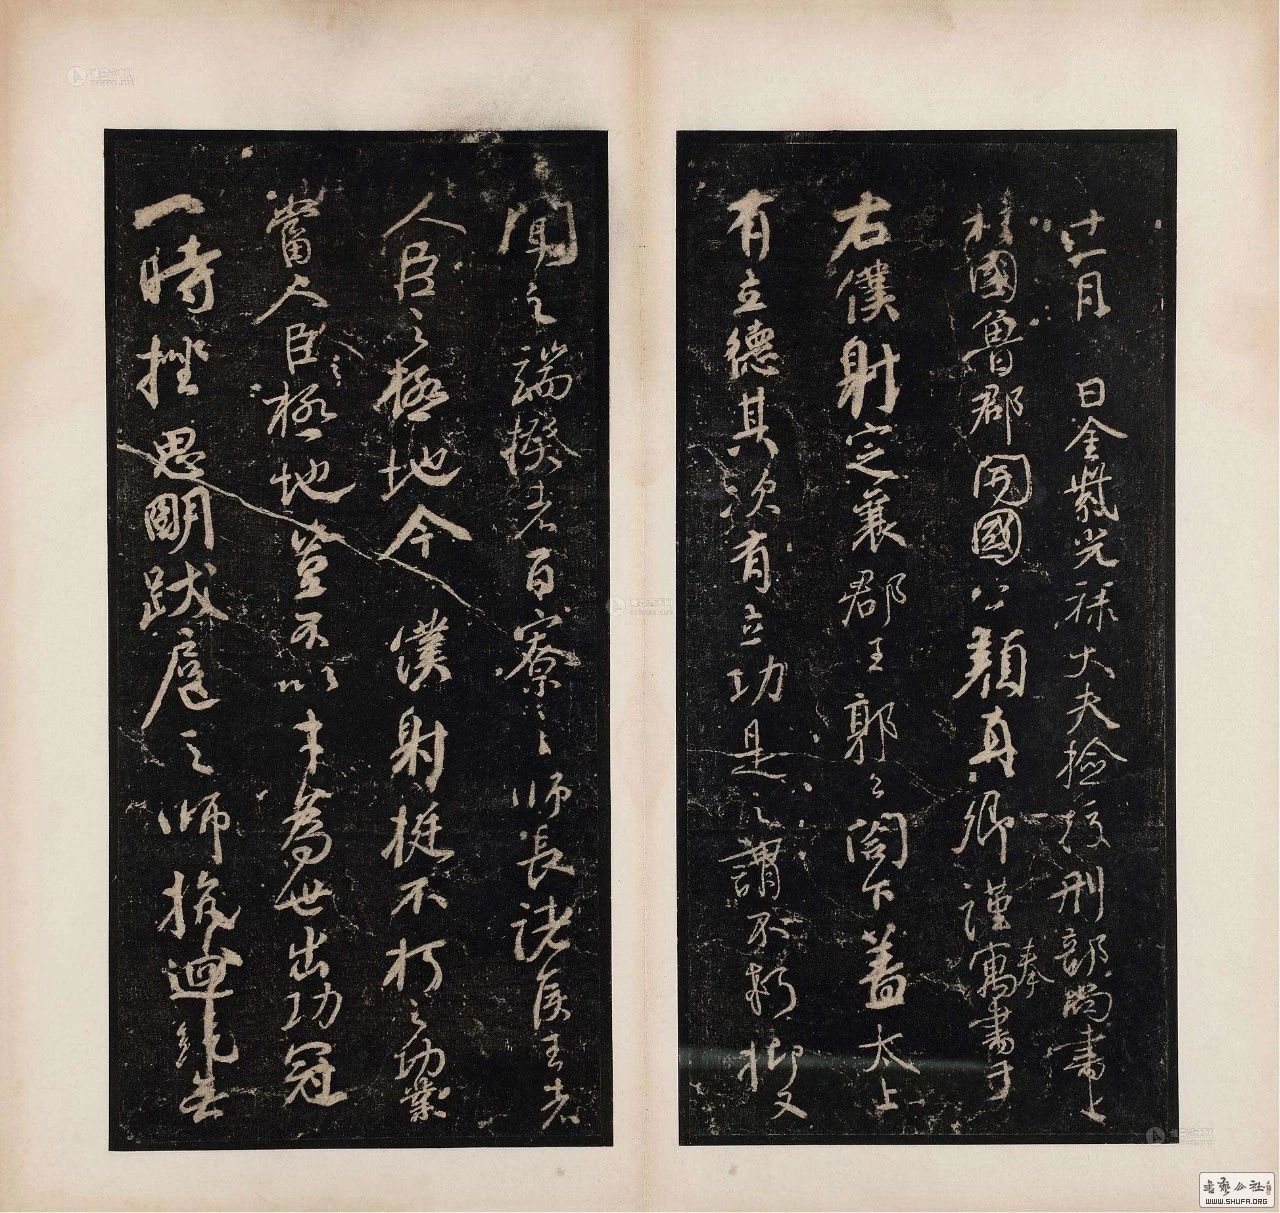 十一月　日金紫光禄大夫檢校刑部尚書上
柱國魯郡開國公顏真卿謹奉寓書于
右僕射定襄郡王郭公閤下蓋太上
有立德其次有立功是之謂不朽抑又
聞之端揆者百寮之師長諸侯王者
人臣之極地今僕射挺不朽之功業
當人臣之極地豈不以才為世出功冠
一時挫思明跋扈之師抗迴紇無
書艺公社
WWW.SHUFA.ORG